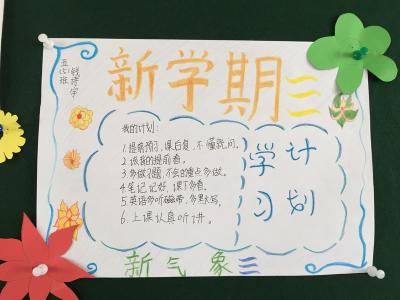 新学期
五(5)班
钱诗宇
我的计划:
1.提前预习,课后复,不懂就问。
2.该背的提前看。
3.多做习题,不会的重点多做。
4.笔记记好,课下多看。
5.英语多听磁带,多默写。
6.上课认真听讲。
学习
计划
新气象